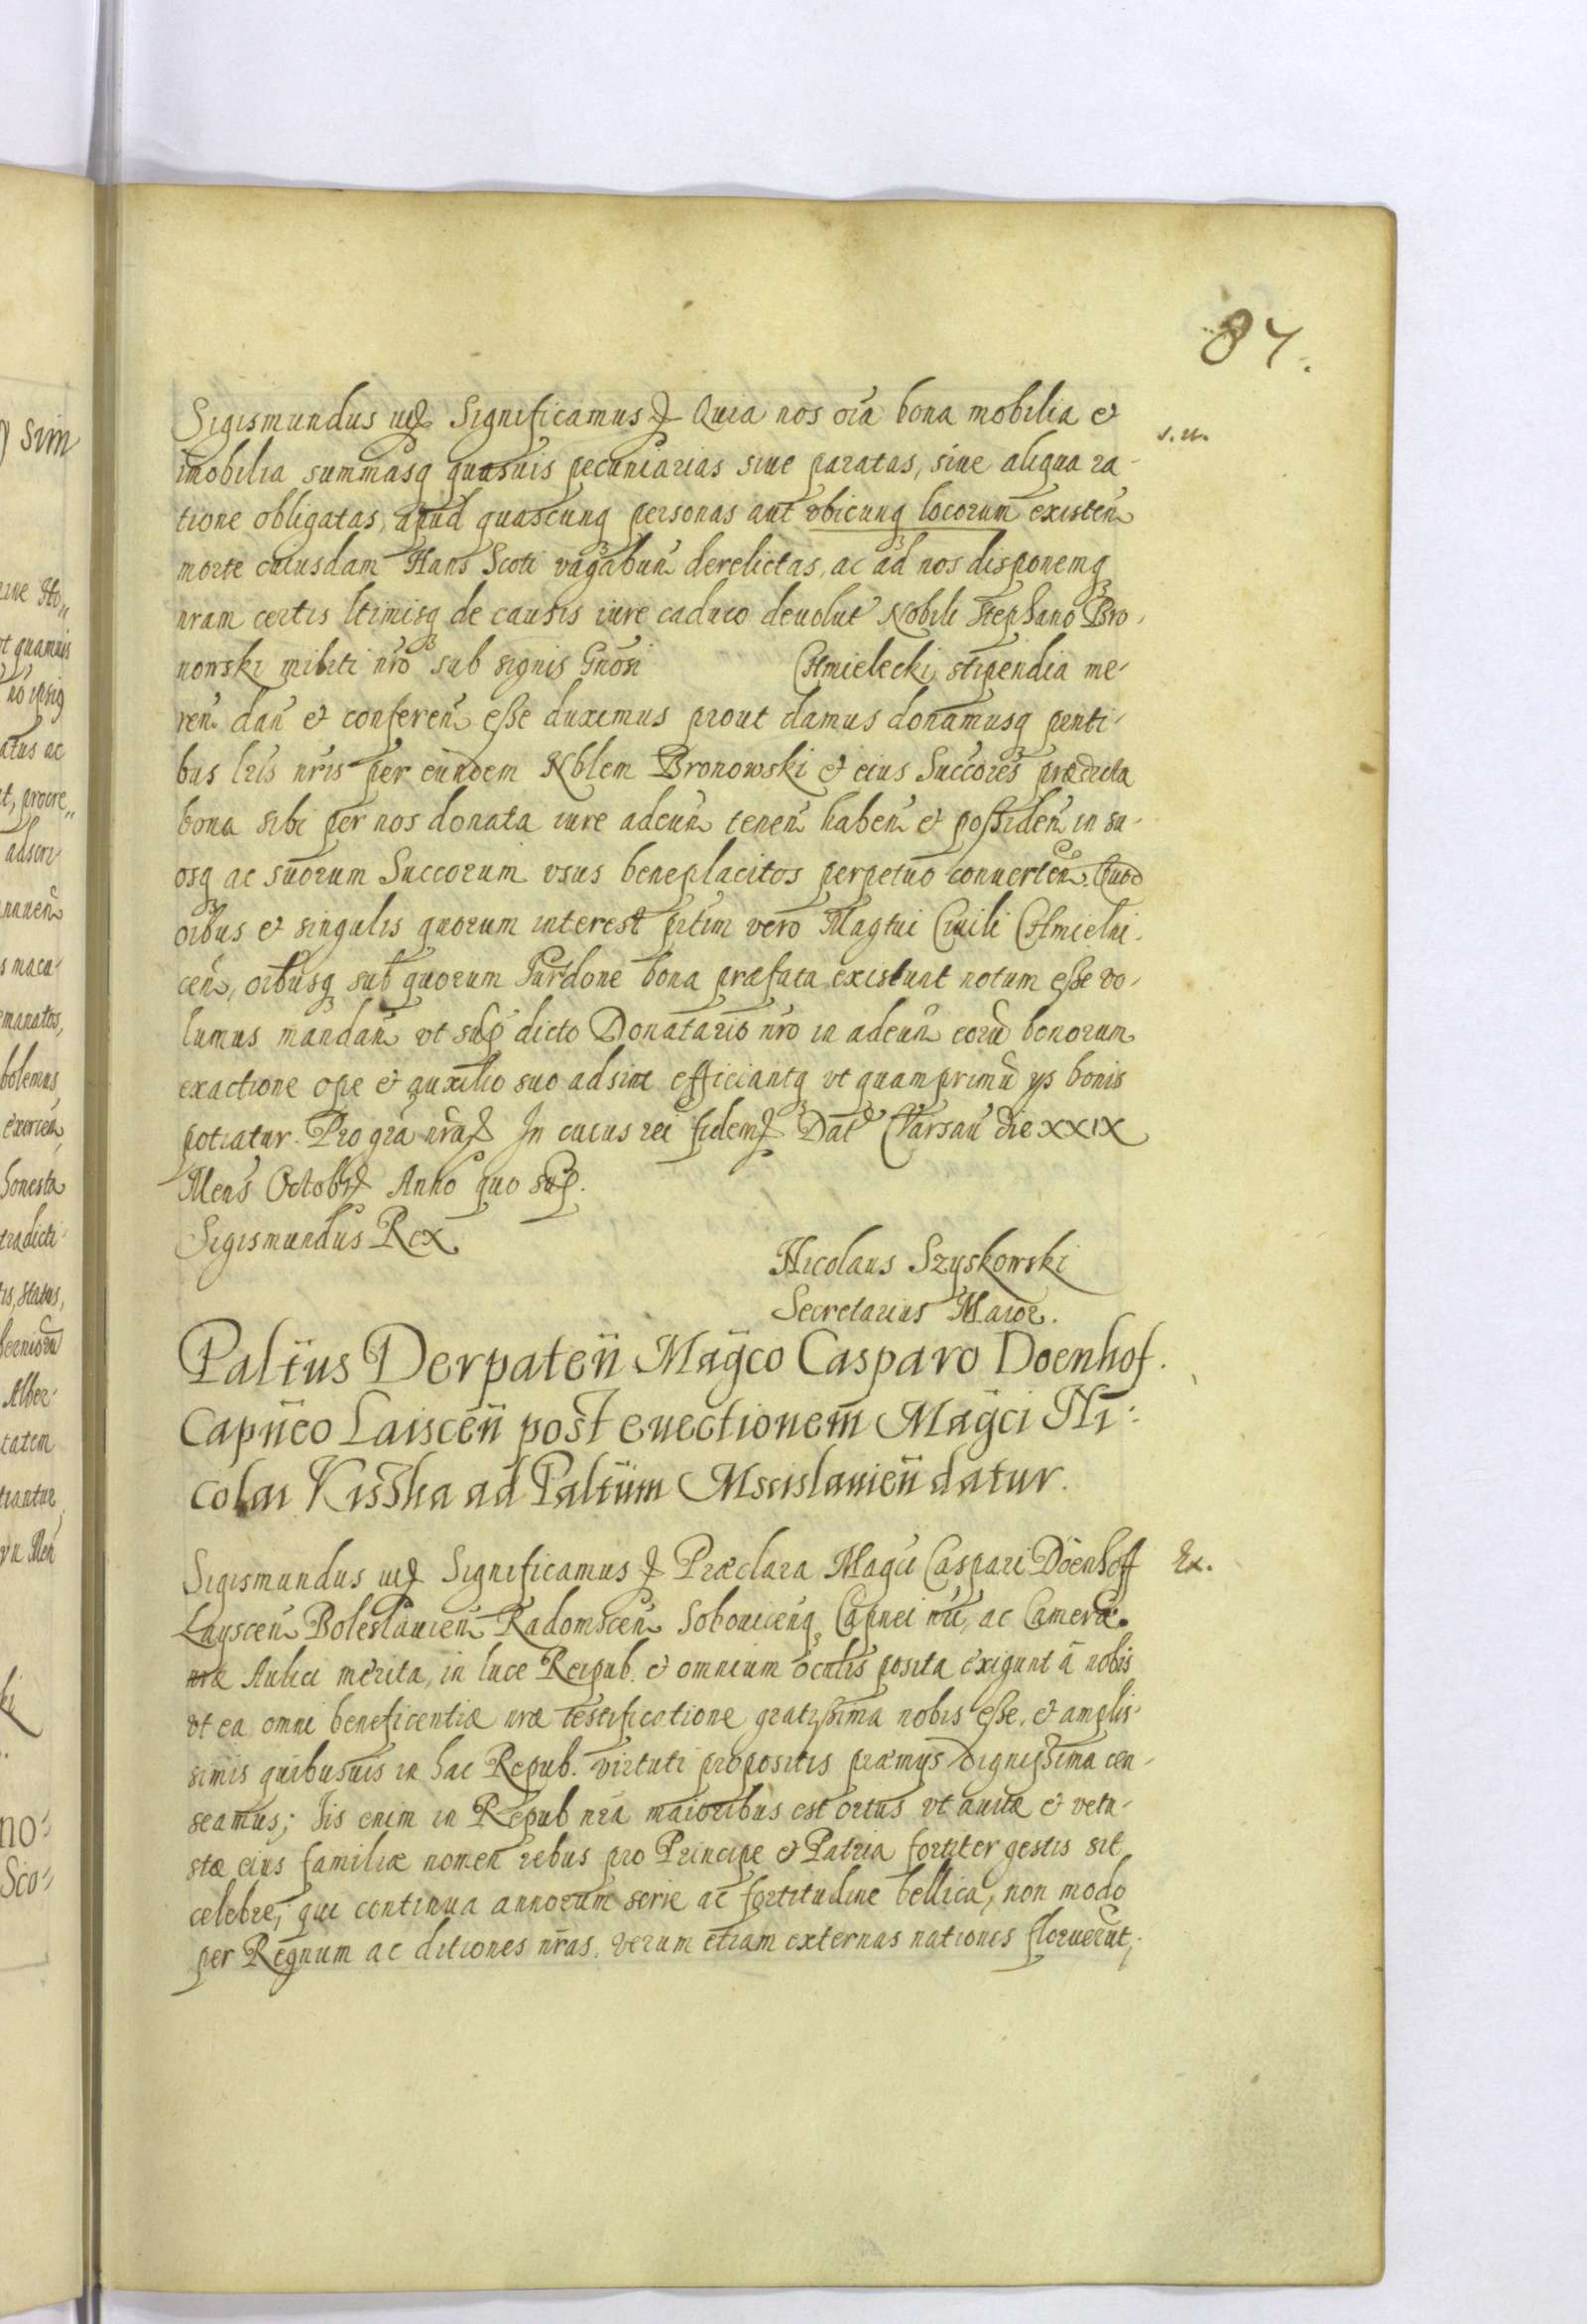 87.
Sigismundus etc Significamus etc Quia nos oia bona mobilia et
s. n.
imobilia summasq quasuis pecuniarias siue paratas, siue aliqua ra-
tione obligatas, apud quascunq personas aut vbicunq locorum existen
morte cuiusdam Hans Scoti vagabun derelictas, ac ad nos disponemq
nram certis ltimisq de causis iure caduco deuolut Nobili Stephano Bro-
nowski militi nro sub signis Gnosi Chmielecki stipendia me-
ren dan et conferen esse duximus prout damus donamusq pnti-
bus lris nris per eundem Nblem Bronowski et eius Succores prædicta
bona sibi per nos donata iure adeun tenen haben et possiden in su-
osq ac suorum Succorum vsus beneplacitos perpetuo conuerten. Quod
oibus et singulis quorum interest prtim vero Magtui Ciuili Chmielni-
cen, oibusq sub quorum Jurdone bona præfata existunt notum esse vo-
lumus mandan vt sup dicto Donatario nro in adeun eoru bonorum
exactione ope et auxilio suo adsint efficiantq vt quamprimu ys bonis
potiatur. Pro gra nra etc In cuius rei fidem etc Dat Varsau die XXIX
Mens Octobr etc Anno quo sup.
Sigismundus Rex
Nicolaus Szyskowski
Secretarius Maior.
Paltus Derpaten Magco Casparo Doenhof.
Capneo Laiscen post euectionem Magci Ni:
colai Kisska ad Paltum Mscislauien datur.
Sigismundus etc Significamus etc Præclara Magci Caspari Döenhoff
Ex.
Layscen Boleslauien Radomscen Sobouicenq Capnei nri, ac Cameræ
nræ Aulici merita, in luce Reipub. et omnium oculis posita exigunt à nobis
vt ea omni beneficentiæ nræ testificatione gratissima nobis esse, et amplis-
simis quibusuis in hac Repub. virtuti propositis præmys dignissima cen-
seamus; Iis enim in Repub nra maioribus est ortus vt auitæ et vetu-
stæ eius familiæ nomen rebus pro Principe et Patria fortiter gestis sit
celebre; qui continua annorum serie ac fortitudine bellica, non modo
per Regnum ac ditiones nras, verum etiam externas nationes floruerut;